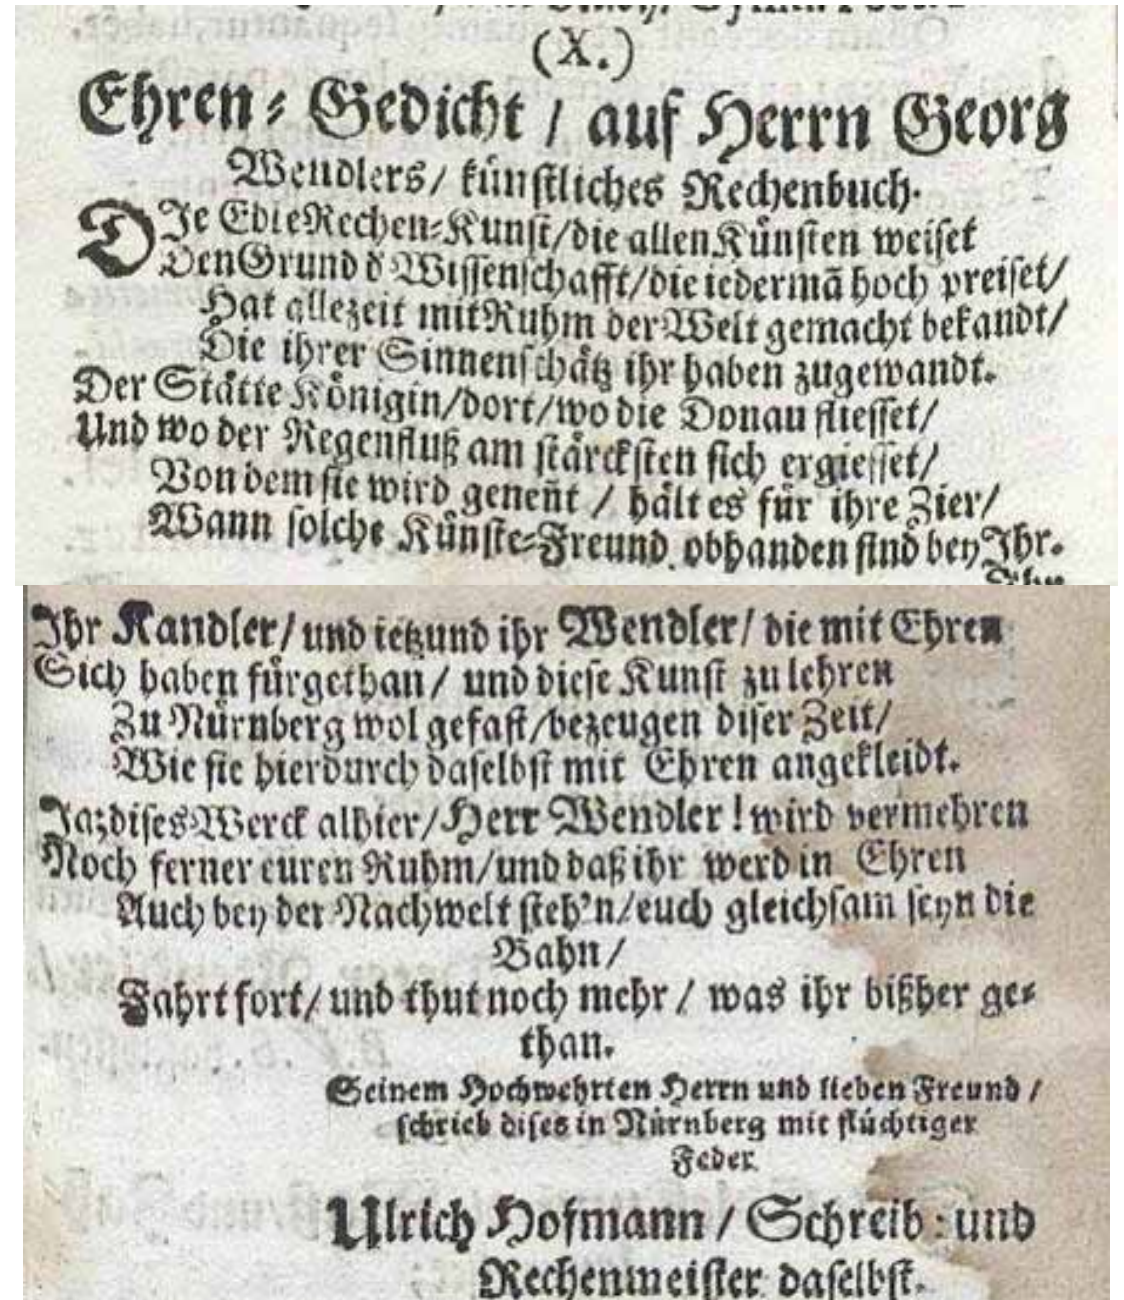 (X.)
Ehren-Gedicht / auf Herrn Georg
Wendlers / künstliches Rechenbuch.
DIe Edle Rechen-Kunst/die allen Künsten weiset
Den Grund d Wissenschafft/die iedermã hoch preiset/
Hat allezeit mit Ruhm der Welt gemacht bekandt/
Die ihrer Sinnenschätz ihr haben zugewandt.
Der Stätte Königin/dort/wo die Donau fliesset/
Und wo der Regenfluß am stärcksten sich ergiesset/
Von dem sie wird genen̄t / hält es für ihre Zier/
Wann solche Künste-Freund obhanden sind bey Ihr.
Ihr Kandler/ und ietzund ihr Wendler/ die mit Ehren
Sich haben fürgethan/ und diese Kunst zu lehren
Zu Nürnberg wol gefast/bezeugen diser Zeit/
Wie sie hierdurch daselbst mit Ehren angekleidt.
Ja, dises Werck alhier/Herr Wendler! wird vermehren
Noch ferner euren Ruhm/und daß ihr werd in Ehren
Auch bey der Nachwelt steh'n/euch gleichsam seyn die
Bahn/
Fahrt fort/ und thut noch mehr / was ihr bißher ge-
than.
Seinem Hochwehrten Herrn und lieben Freund /
schrieb dises in Nürnberg mit flüchtiger
Feder
Ulrich Hofmann / Schreib- und
Rechenmeister daselbst.